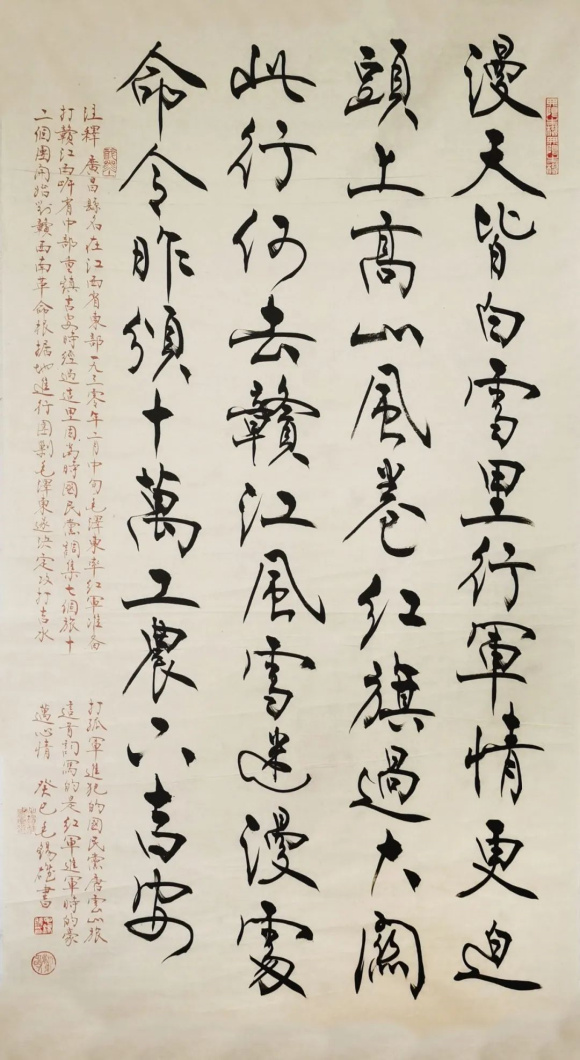 漫天皆白雪里行軍情更迫
頭上高山風卷紅旗過大關
此行何去贛江風雪迷漫處
命令昨頒十萬工農下吉安
注釋 廣昌縣名在江西省東部一九三零年二月中旬毛澤東率紅軍准备
打贛江西岸省中部重鎮吉安時經過這里因當時國民黨稠集七個旅十
二個團開始對贛西南革命根據地進行圍剿毛澤東遂決定改打吉水
打孤軍進犯的國民黨唐雲山旅
這首詞寫的是紅軍進軍時的豪
邁心情 癸巳毛錫書